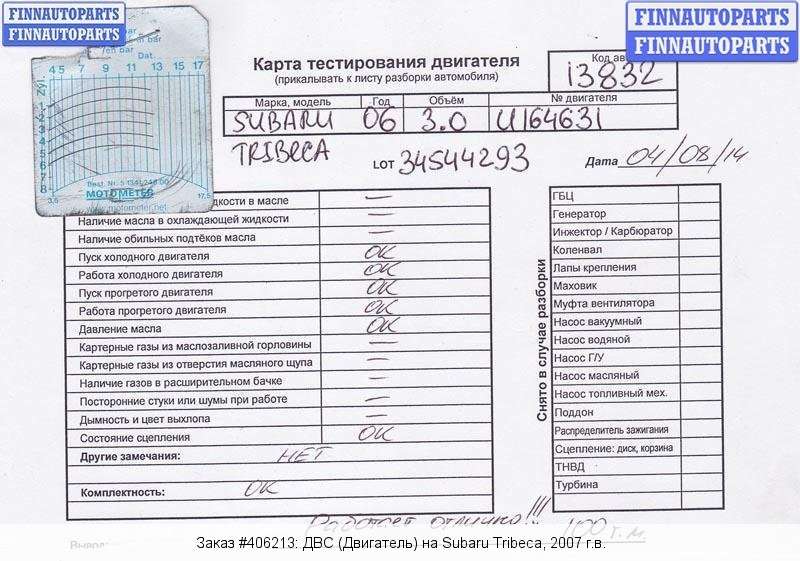 FINNAUTOPARTS
FINNAUTOPARTS
FINNAUTOPARTS
FINNAUTOPARTS
bar
bar
Dat.
4 5 7 9 11 13 15 17
Zyl.
1
2
3
4
5
6
7
8
3.5 17,5
MOTOMETER
www.motometer.net
Карта тестирования двигателя
(прикалывать к листу разборки автомобиля)
Код
i3832
Марка, модель Год Объём № двигателя
SUBARU 06 3.0 U164631
TRIBECA LOT 34544293 Дата 04/08/14
в масле —
Наличие масла в охлаждающей жидкости —
Наличие обильных подтёков масла —
Пуск холодного двигателя OK
Работа холодного двигателя OK
Пуск прогретого двигателя OK
Работа прогретого двигателя OK
Давление масла OK
Картерные газы из маслозаливной горловины —
Картерные газы из отверстия масляного щупа —
Наличие газов в расширительном бачке —
Посторонние стуки или шумы при работе —
Дымность и цвет выхлопа —
Состояние сцепления OK
Другие замечания: НЕТ
Комплектность: OK
Снято в случае разборки
ГБЦ
Генератор
Инжектор / Карбюратор
Коленвал
Лапы крепления
Маховик
Муфта вентилятора
Насос вакуумный
Насос водяной
Насос Г/У
Насос масляный
Насос топливный мех.
Поддон
Распределитель зажигания
Сцепление: диск, корзина
ТНВД
Турбина
Работает отлично!!! 100 т.м.
Заказ #406213: ДВС (Двигатель) на Subaru Tribeca, 2007 г.в.